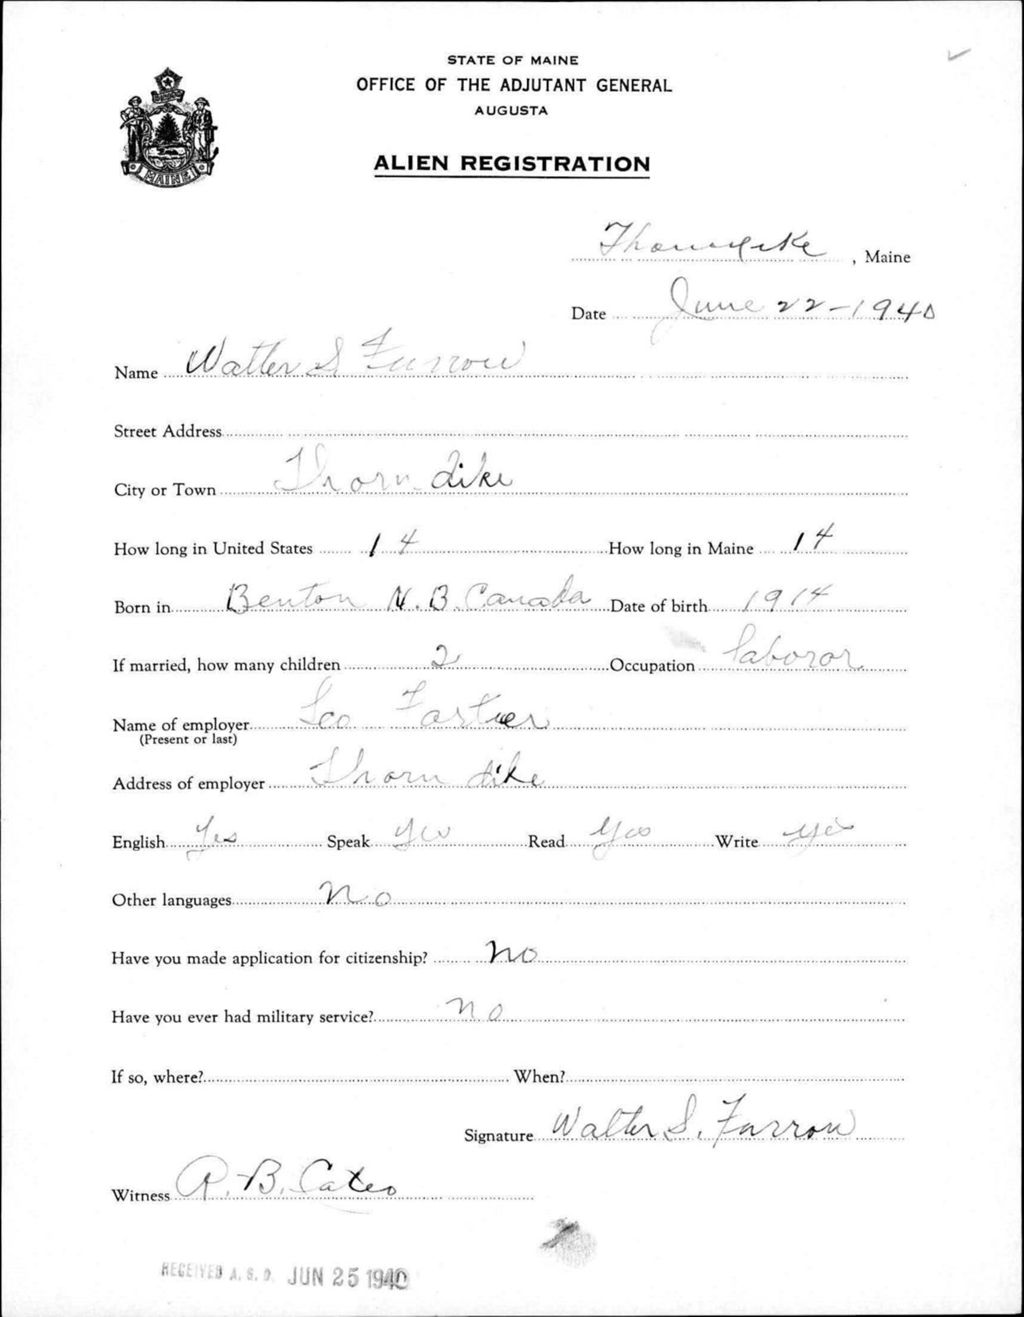 STATE OF MAINE
OFFICE OF THE ADJUTANT GENERAL
AUGUSTA
MAINE
ALIEN REGISTRATION
Thorndike, Maine
Date June 22-1940
Name Walter S Furrow
Street Address
City or Town Thorn dike
How long in United States 14 How long in Maine 14
Born in Benton N.B. Canada Date of birth 1914
If married, how many children 2 Occupation laboror
Name of employer Leo Fortier
(Present or last)
Address of employer Thorn dike
English Yes Speak Yes Read Yes Write Yes
Other languages No
Have you made application for citizenship? No
Have you ever had military service? No
If so, where? When?
Signature Walter S. Furrow
Witness R. B. Cates
RECEIVED A. S. O. JUN 25 1940